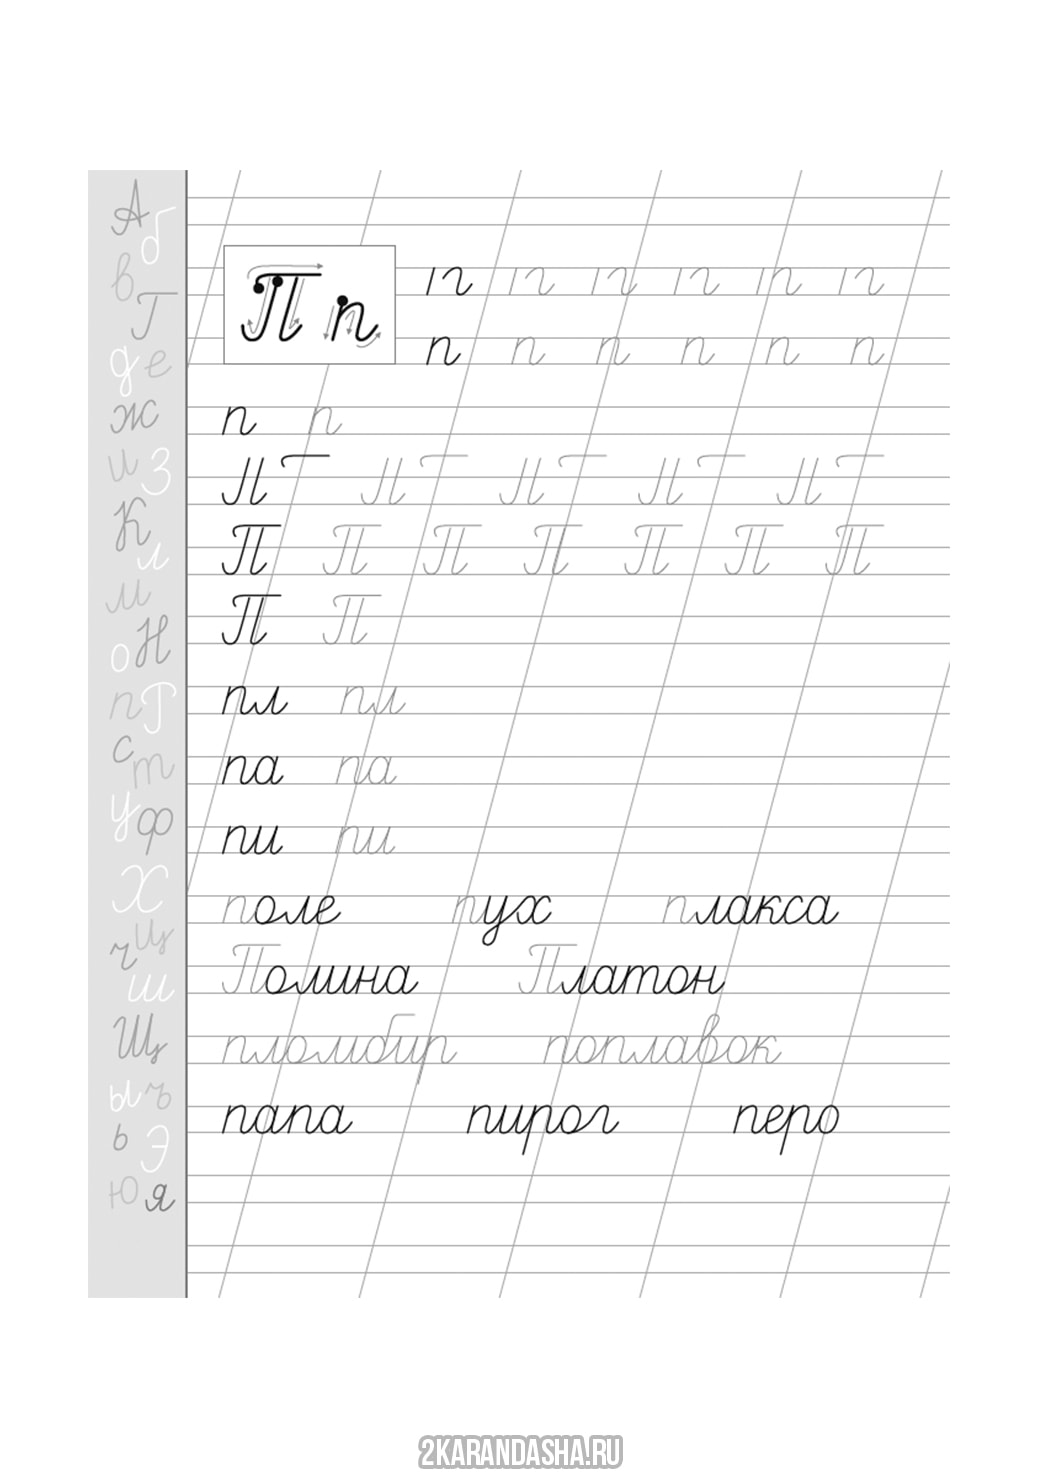 А
б
в
Г
д е
ж
и З
К
л
м
о Н
п Р
с
т
у ф
Х
ч ц
ш
Щ
ы ъ
ь Э
Ю я
П п
п п п п п п
п п
П П П П П П П
П П
пл пл
па па
пи пи
поле пух плакса
Полина Платон
пломбир поплавок
папа пирог перо
2KARANDASHA.RU